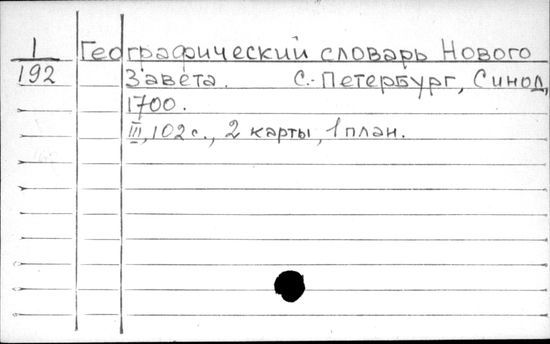 1
192
Географический словарь Нового
Завета. С.-Петербург, Синод,
1700.
III, 102 с., 2 карты, 1 план.